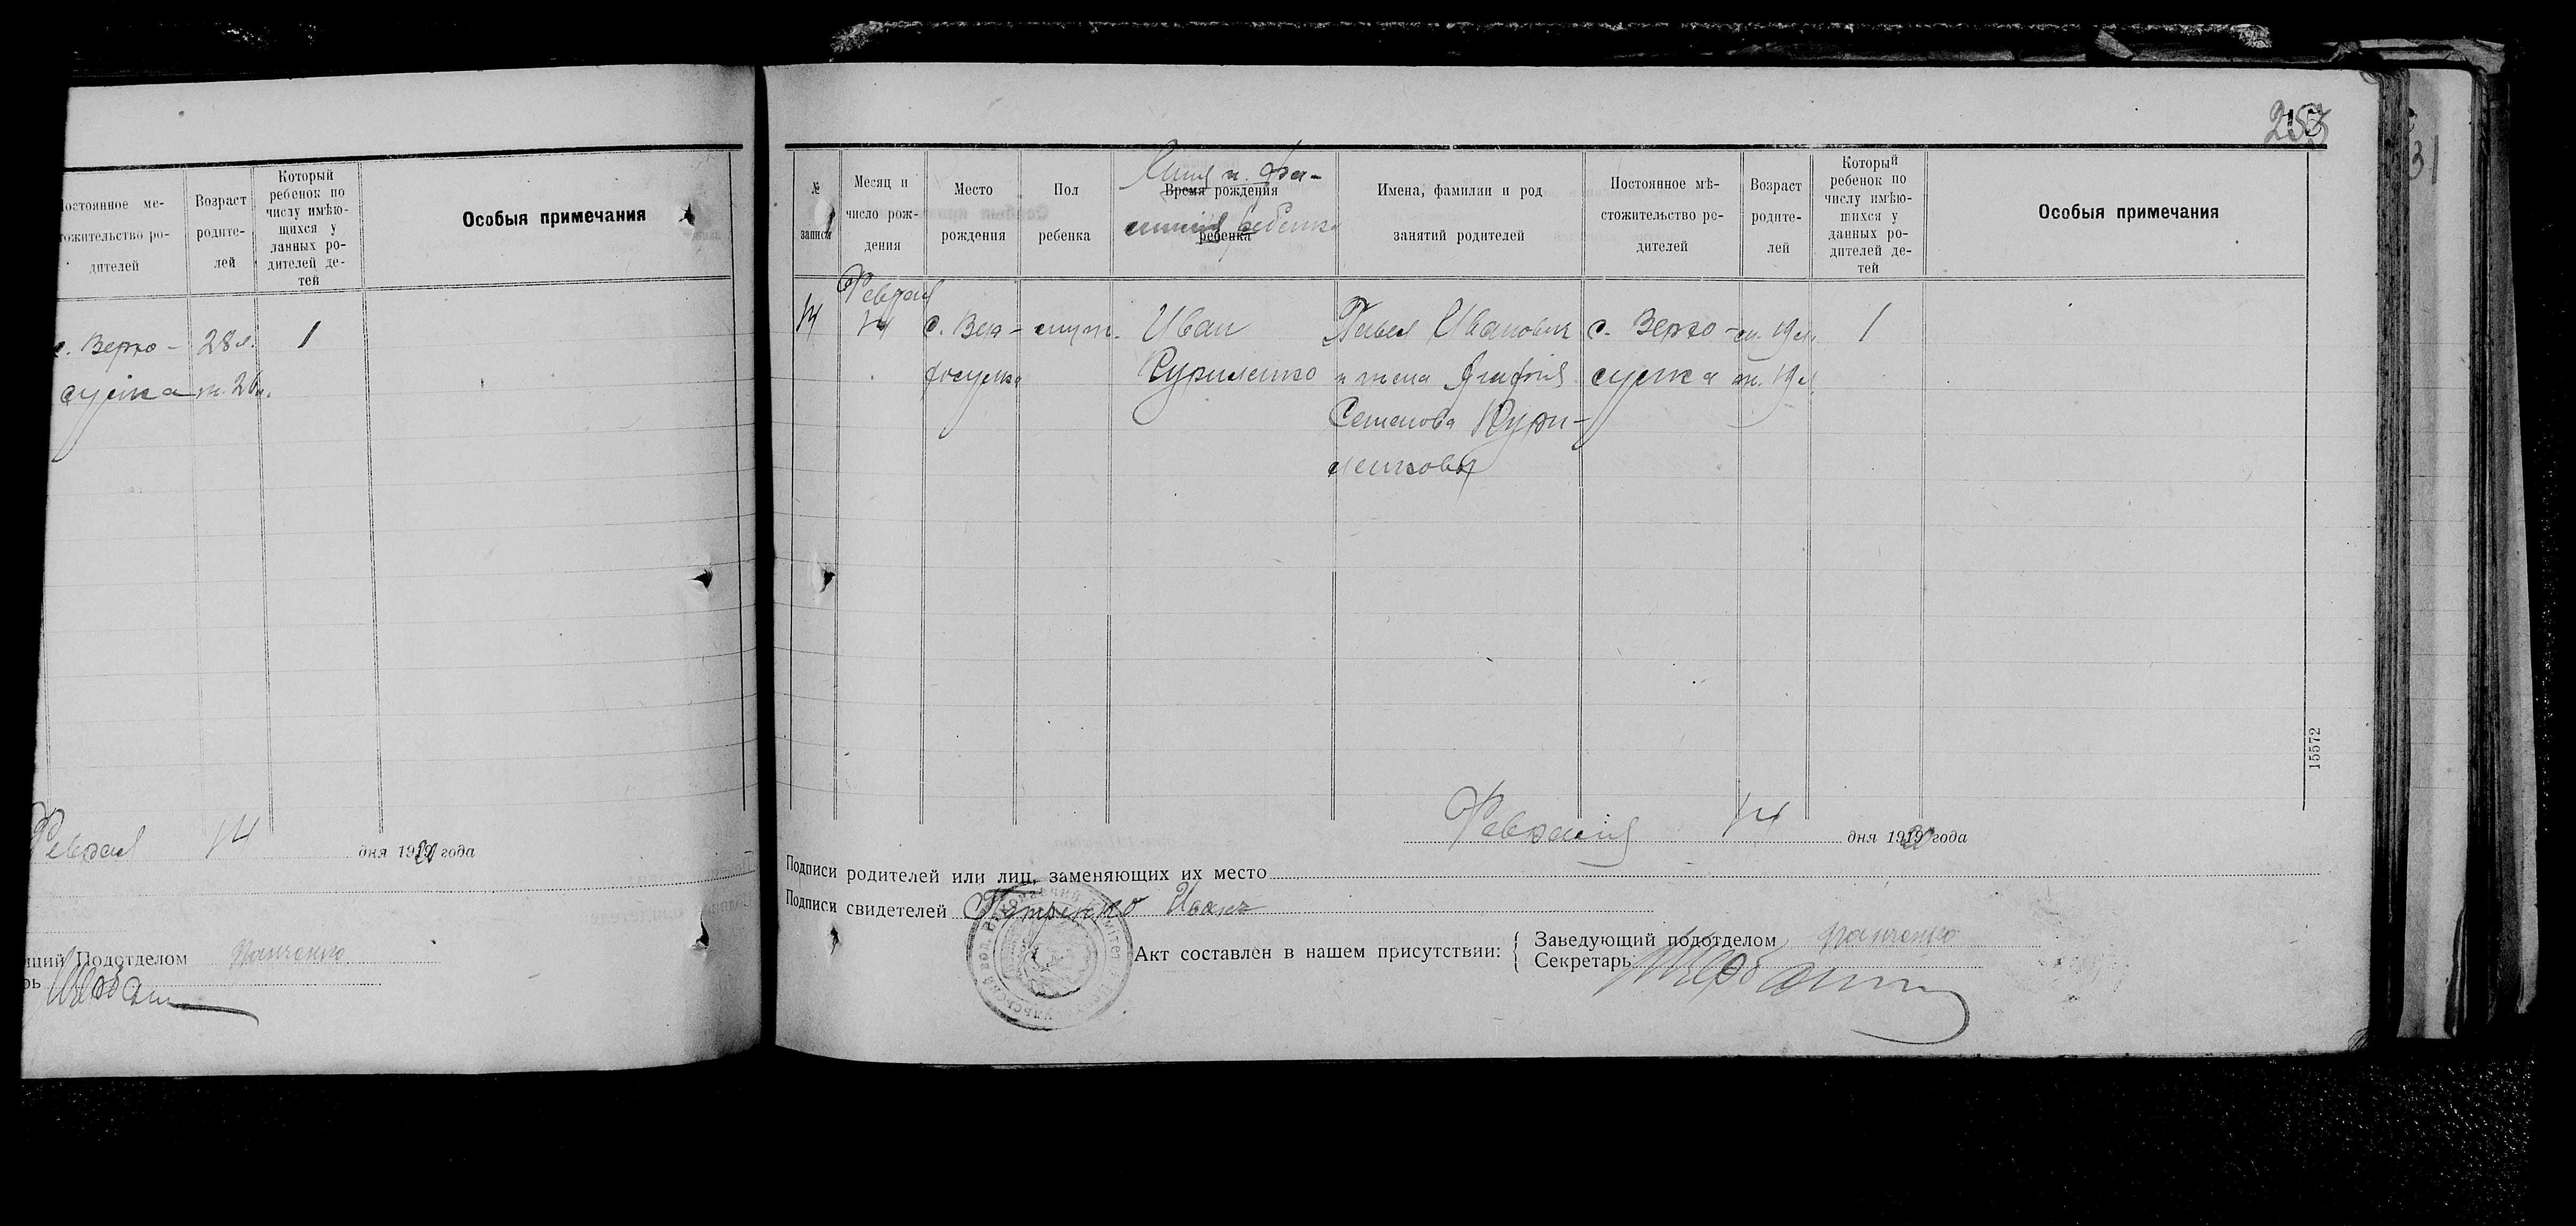 остоянное ме-
ожительство ро-
дителей
Возраст
родите-
лей
Который
ребенок по
числу имѣю-
щихся у
данных ро-
дителей де-
тей
Особыя примечания
с. Верхо-
суłка
28 л.
ж. 26 л.
1
Февраля 14 дня 1920 года
щий Подотделом
рь
253
31
№
записи
Месяц и
число рож-
дения
Место
рождения
Пол
ребенка
Имя и фа-
Время рождения
милия ребенка
ребенка
Имена, фамилии и род
занятий родителей
Постоянное мѣ-
стожительство ро-
дителей
Возраст
родите-
лей
Который
ребенок по
числу имѣю-
щихся у
данных ро-
дителей де-
тей
Особыя примечания
14
Февраля
14
с. Вер-
хосулка
муж.
Иван
Куриленко
Павел Иванович
и жена Агафия
Семенова Кури-
ленкова
с. Верхо-
сулка
м. 19 л.
ж. 19 л.
1
15572
Февраля 14 дня 1920 года
Подписи родителей или лиц, заменяющих их место
Подписи свидетелей Петренко Иван
Акт составлен в нашем присутствии:
Заведующий подотделом
Секретарь